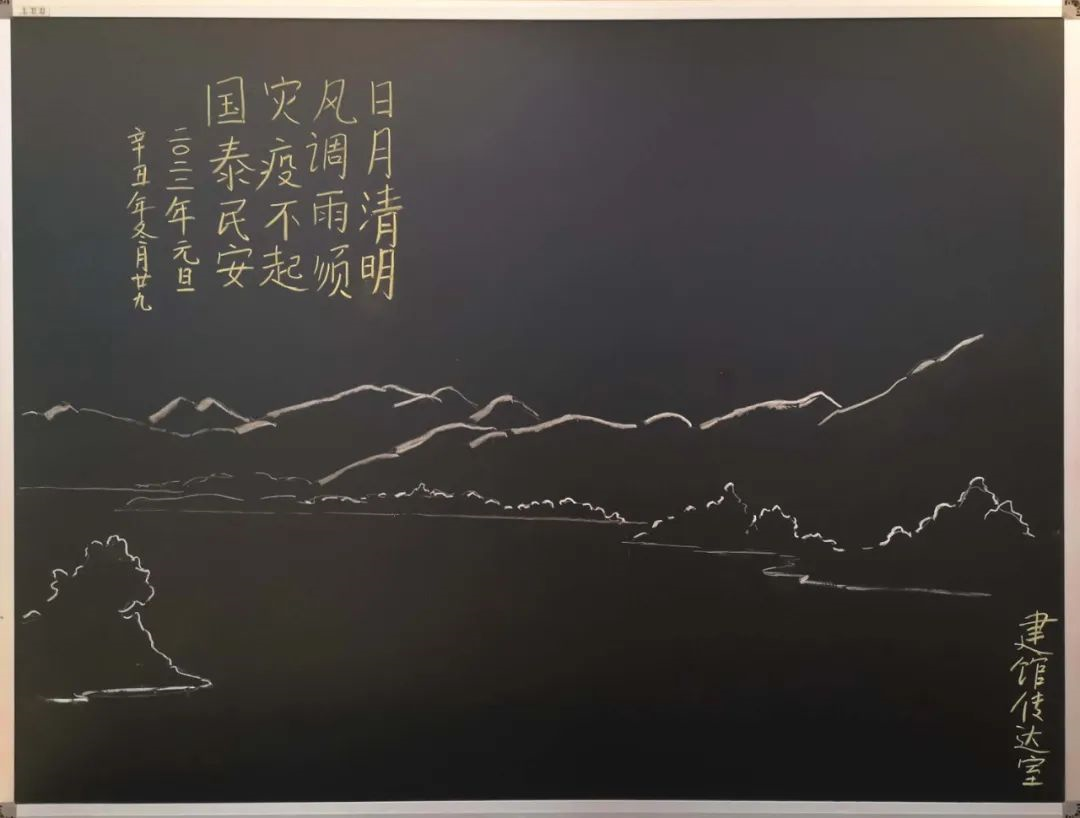 日月清明
风调雨顺
灾疫不起
国泰民安
二〇二二年元旦
辛丑年冬月廿九
建馆传达室